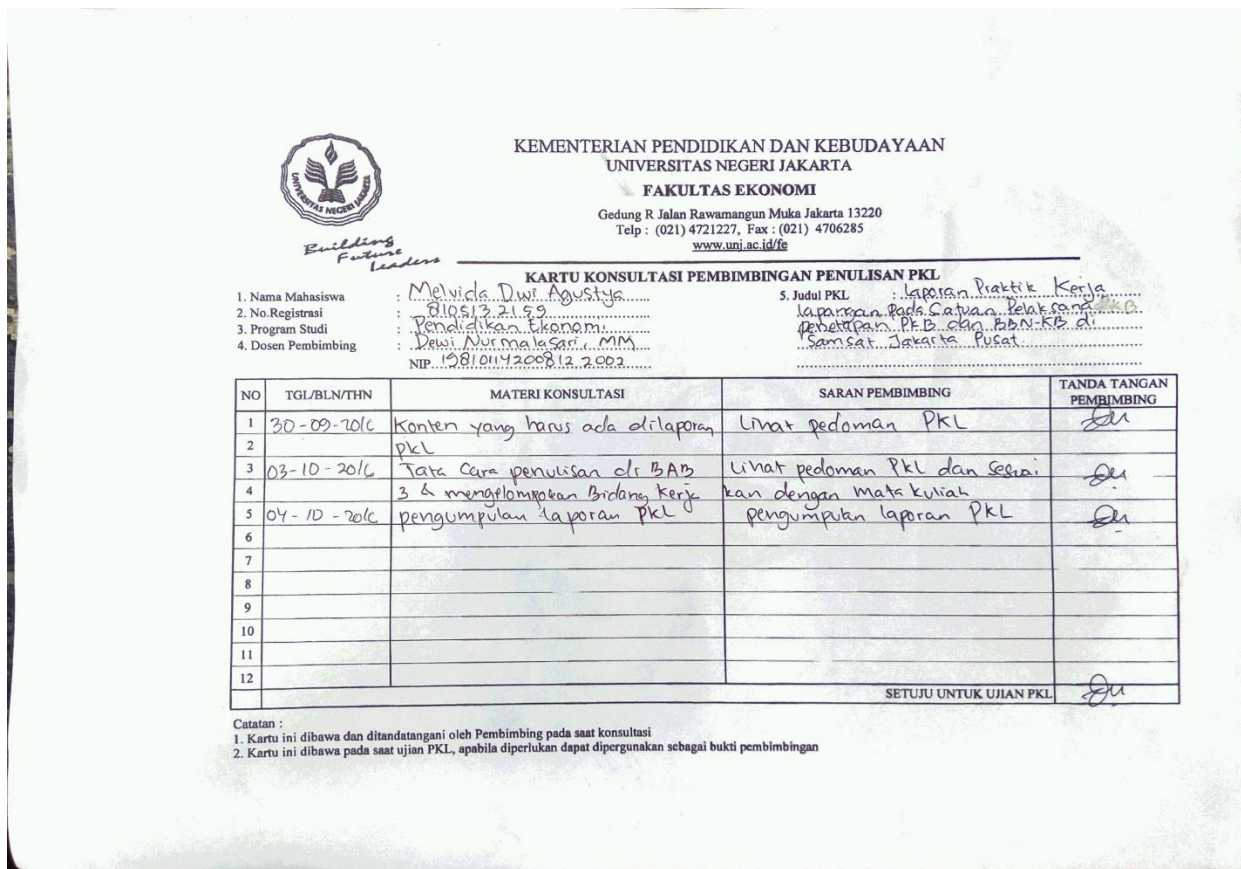 KEMENTERIAN PENDIDIKAN DAN KEBUDAYAAN
UNIVERSITAS NEGERI JAKARTA
FAKULTAS EKONOMI
Gedung R Jalan Rawamangun Muka Jakarta 13220
Telp : (021) 4721227, Fax : (021) 4706285
www.unj.ac.id/fe
UNIVERSITAS NEGERI JAKARTA
Building
Future
Leaders
KARTU KONSULTASI PEMBIMBINGAN PENULISAN PKL
1. Nama Mahasiswa : Melvida Dwi Agustya
2. No.Registrasi : 8105132159
3. Program Studi : Pendidikan Ekonomi
4. Dosen Pembimbing : Dewi Nurmalasari, MM
NIP. 198101142008122002
5. Judul PKL : Laporan Praktik Kerja
lapangan Pada Satuan Pelaksana
penetapan PKB dan BBN-KB di
Samsat Jakarta Pusat
NO TGL/BLN/THN MATERI KONSULTASI SARAN PEMBIMBING TANDA TANGAN PEMBIMBING
1 30-09-2016 Konten yang harus ada dilaporan Lihat pedoman PKL
2 PKL
3 03-10-2016 Tata Cara penulisan di BAB Lihat pedoman PKL dan Sesuai
4 3 & mengelompokan Bidang Kerja kan dengan mata kuliah
5 04-10-2016 pengumpulan laporan PKL pengumpulan laporan PKL
6
7
8
9
10
11
12
SETUJU UNTUK UJIAN PKL
Catatan :
1. Kartu ini dibawa dan ditandatangani oleh Pembimbing pada saat konsultasi
2. Kartu ini dibawa pada saat ujian PKL, apabila diperlukan dapat dipergunakan sebagai bukti pembimbingan